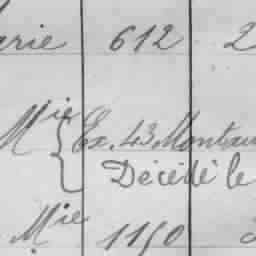 arie 612 2
Mie { Ex. 43 Montau
Décédé le
Mie 1150